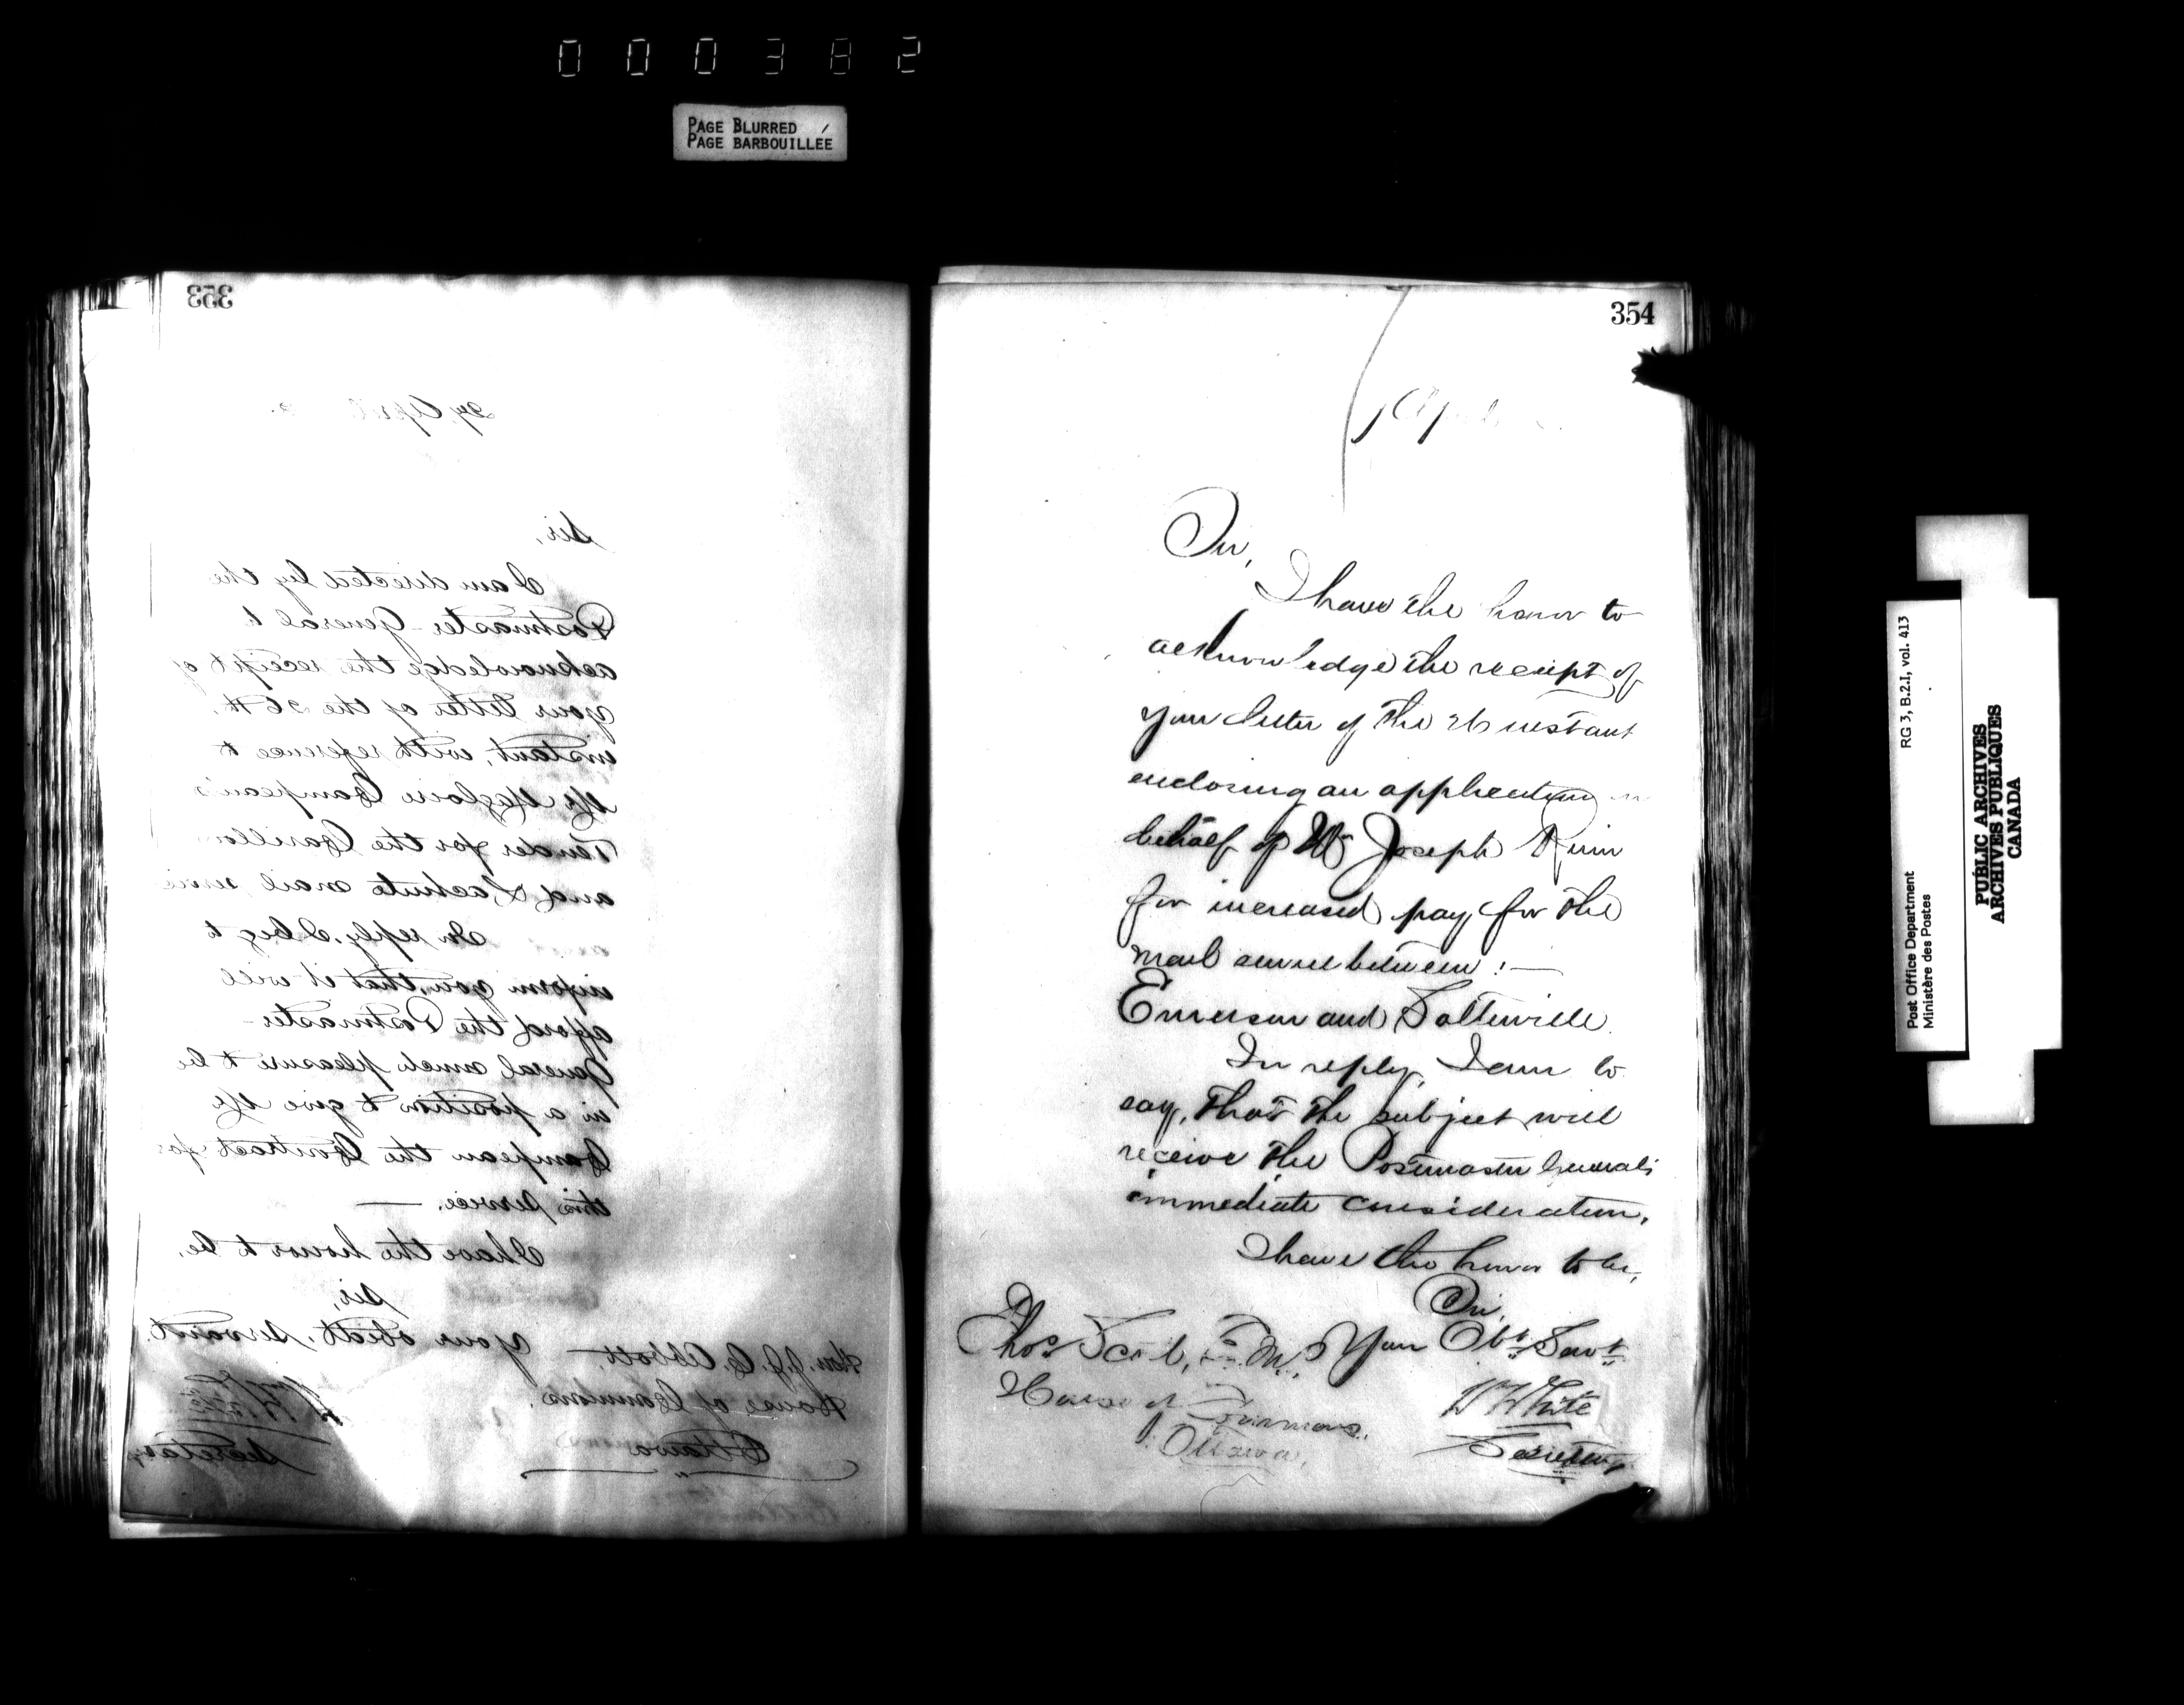 000382
PAGE BLURRED
PAGE BARBOUILLÉE
353
27 April
Sir,
I am directed by the
Postmaster-General to
acknowledge the receipt of
your letter of the 26th
instant, with reference to
Mr Magloire Campeau's
Tender for the Carillon
and Lachute mail service
In reply, I beg to
inform you, that it will
afford the Postmaster-
General much pleasure to be
in a position to give Mr
Campeau the Contract for
this service.
I have the honor to be,
Sir,
Your obedt. servant.
Hon. J. J. C. Abbott.
House of Commons.
Ottawa
Secretary
354
April
Sir,
I have the honor to
acknowledge the receipt of
your letter of the 26 instant
enclosing an application on
behalf of Mr Joseph
for increased pay for the
mail service between :—
Emerson and
In reply, I am to
say, that the subject will
receive the Postmaster Generals
immediate consideration.
I have the honor to be,
Sir,
Your Obt. Servt.
Thos Scott, Esq. M.P.
House of Commons.
Ottawa.
W White
Secretary
Post Office Department
Ministère des Postes
RG 3, B.2.I, vol. 413
PUBLIC ARCHIVES
ARCHIVES PUBLIQUES
CANADA